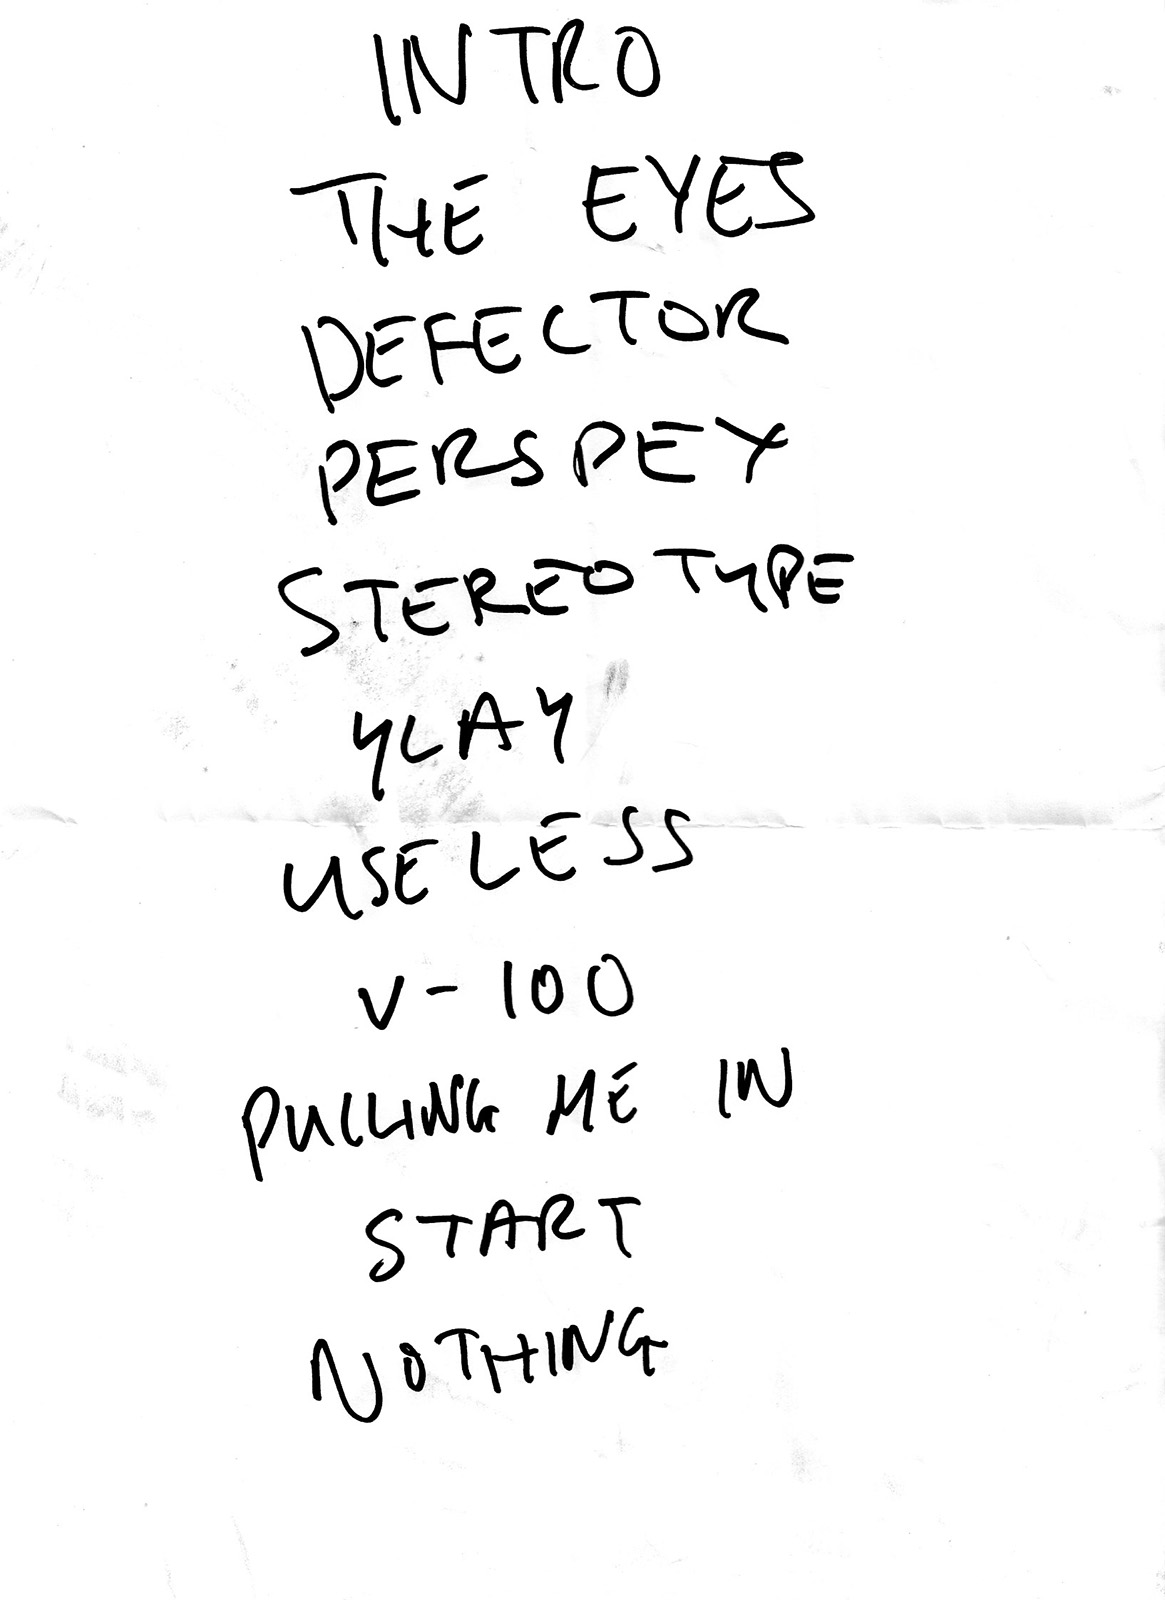 INTRO
THE EYES
DEFECTOR
PERSPEY
STEREOTYPE
YLAY
USELESS
V-100
PULLING ME IN
START
NOTHING